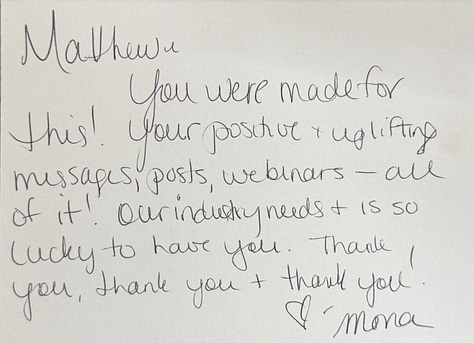 Mathew
You were made for
this! Your positive + uplifting
messages, posts, webinars – all
of it! Our industry needs + is so
lucky to have you. Thank
you, thank you + thank you!
♡ - Mona